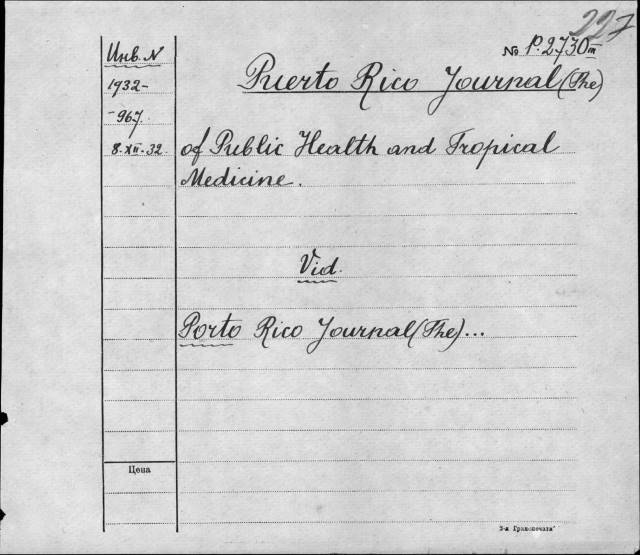 227
Инв. N
№ P.2730III
1932-
Puerto Rico Journal (The)
-967.
8.XII-32
of Public Health and Tropical
Medicine.
Vid.
Porto Rico Journal (The)...
Цена